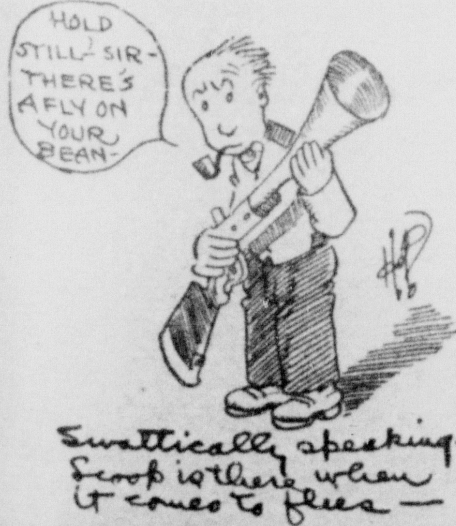 HOLD
STILL - SIR -
THERE'S
A FLY ON
YOUR
BEAN -
HOP
Swattically speaking
Scoop is there when
it comes to flies —